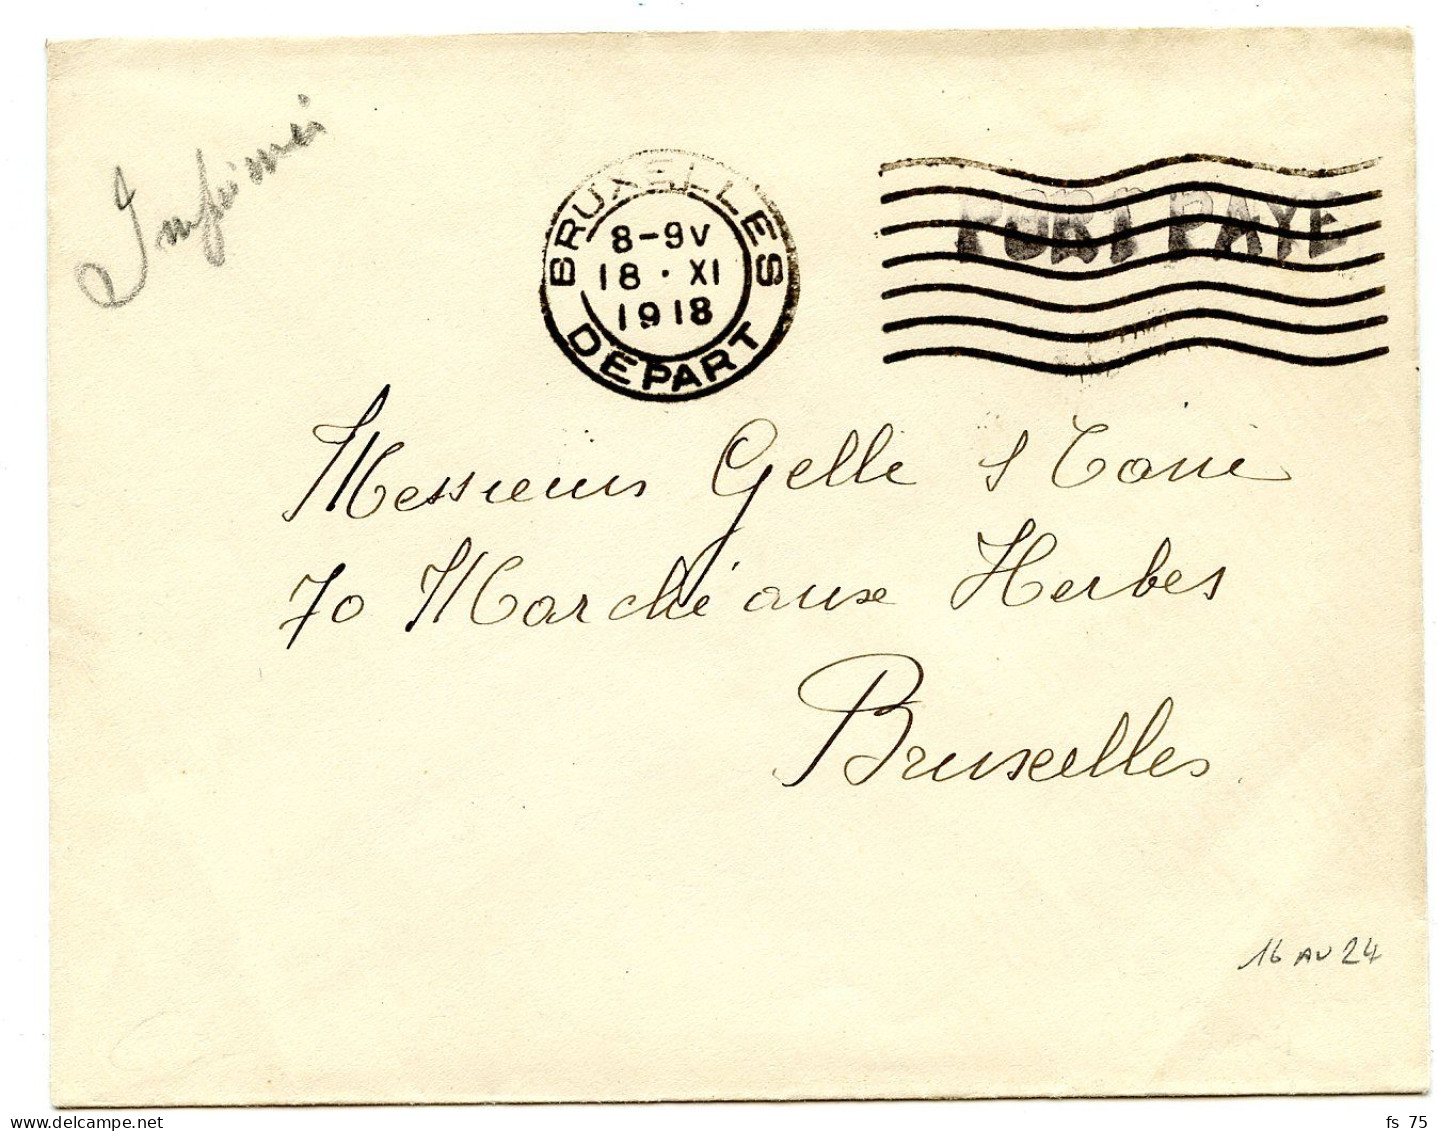 Imprimés
BRUXELLES
8-9V
18 · XI
1918
DEPART
PORT PAYE
Messieurs Gelle &
70 Marché aux Herbes
Bruxelles
16 AU 24
fs 75